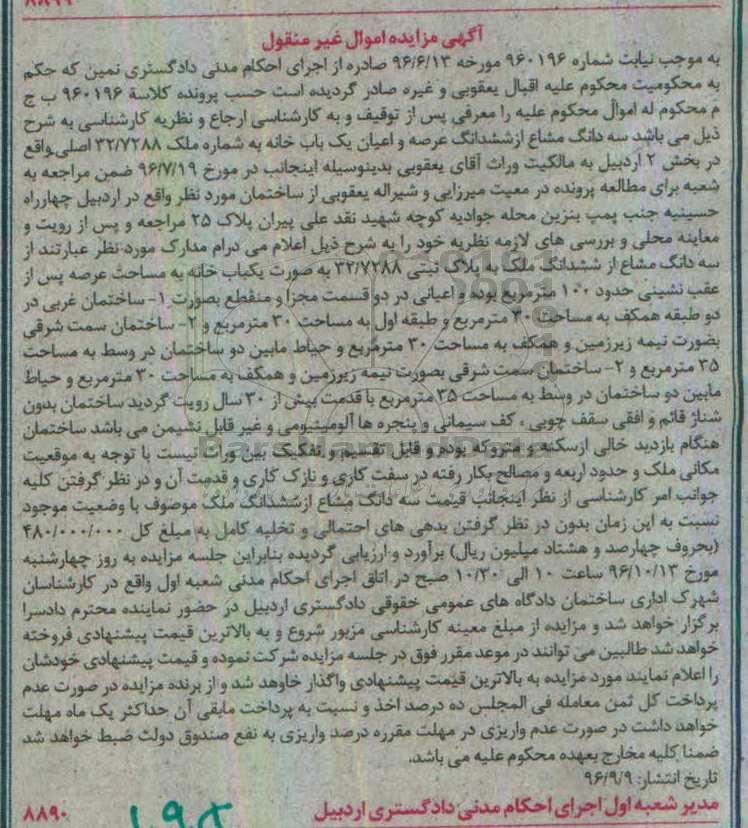 ۸۸۹۹
آگهی مزایده اموال غیر منقول
به موجب نیابت شماره ۹۶۰۱۹۶ مورخه ۹۶/۶/۱۳ صادره از اجرای احکام مدنی دادگستری نمین که حکم
به محکومیت محکوم علیه اقبال یعقوبی و غیره صادر گردیده است حسب پرونده کلاسة ۹۶۰۱۹۶ ب ج
م محکوم له اموال محکوم علیه را معرفی پس از توقیف و به کارشناسی ارجاع و نظریه کارشناسی به شرح
ذیل می باشد سه دانگ مشاع ازششدانگ عرصه و اعیان یک باب خانه به شماره ملک ۳۲/۷۲۸۸ اصلی واقع
در بخش ۲ اردبیل به مالکیت وراث آقای یعقوبی بدینوسیله اینجانب در مورخ ۹۶/۷/۱۹ ضمن مراجعه به
شعبه برای مطالعه پرونده در معیت میرزایی و شیراله یعقوبی از ساختمان مورد نظر واقع در اردبیل چهارراه
حسینیه جنب پمپ بنزین محله جوادیه کوچه شهید نقد علی پیران پلاک ۲۵ مراجعه و پس از رویت و
معاینه محلی و بررسی های لازمه نظریه خود را به شرح ذیل اعلام می درام مدارک مورد نظر عبارتند از
سه دانگ مشاع از ششدانگ ملک به پلاک ثبتی ۳۲/۷۲۸۸ به صورت یکباب خانه به مساحت عرصه پس از
عقب نشینی حدود ۱۰۰ مترمربع بوده و اعیانی در دو قسمت مجزا و منقطع بصورت ۱- ساختمان غربی در
دو طبقه همکف به مساحت ۳۰ مترمربع و طبقه اول به مساحت ۳۰ مترمربع و ۲- ساختمان سمت شرقی
بصورت نیمه زیرزمین و همکف به مساحت ۳۰ مترمربع و حیاط مابین دو ساختمان در وسط به مساحت
۳۵ مترمربع و ۲- ساختمان سمت شرقی بصورت نیمه زیرزمین و همکف به مساحت ۳۰ مترمربع و حیاط
مابین دو ساختمان در وسط به مساحت ۳۵ مترمربع با قدمت بیش از ۳۰ سال رویت گردید ساختمان بدون
شناژ قائم و افقی سقف چوبی ، کف سیمانی و پنجره ها آلومینیومی و غیر قابل نشیمن می باشد ساختمان
هنگام بازدید خالی ازسکنه و متروکه بوده و قابل تقسیم و تفکیک بین وراث نیست با توجه به موقعیت
مکانی ملک و حدود اربعه و مصالح بکار رفته در سفت کاری و نازک کاری و قدمت آن و در نظر گرفتن کلیه
جوانب امر کارشناسی از نظر اینجانب قیمت سه دانگ مشاع ازششدانگ ملک موصوف با وضعیت موجود
نسبت به این زمان بدون در نظر گرفتن بدهی های احتمالی و تخلیه کامل به مبلغ کل ۴۸۰/۰۰۰/۰۰۰
(بحروف چهارصد و هشتاد میلیون ریال) برآورد و ارزیابی گردیده بنابراین جلسه مزایده به روز چهارشنبه
مورخ ۹۶/۱۰/۱۳ ساعت ۱۰ الی ۱۰/۳۰ صبح در اتاق اجرای احکام مدنی شعبه اول واقع در کارشناسان
شهرک اداری ساختمان دادگاه های عمومی حقوقی دادگستری اردبیل در حضور نماینده محترم دادسرا
برگزار خواهد شد و مزایده از مبلغ معینه کارشناسی مزبور شروع و به بالاترین قیمت پیشنهادی فروخته
خواهد شد طالبین می توانند در موعد مقرر فوق در جلسه مزایده شرکت نموده و قیمت پیشنهادی خودشان
را اعلام نمایند مورد مزایده به بالاترین قیمت پیشنهادی واگذار خاوهد شد و از برنده مزایده در صورت عدم
پرداخت کل ثمن معامله فی المجلس ده درصد اخذ و نسبت به پرداخت مابقی آن حداکثر یک ماه مهلت
خواهد داشت در صورت عدم واریزی در مهلت مقرره درصد واریزی به نفع صندوق دولت ضبط خواهد شد
ضمنا کلیه مخارج بعهده محکوم علیه می باشد.
تاریخ انتشار: ۹۶/۹/۹
مدیر شعبه اول اجرای احکام مدنی دادگستری اردبیل
۸۸۹۰